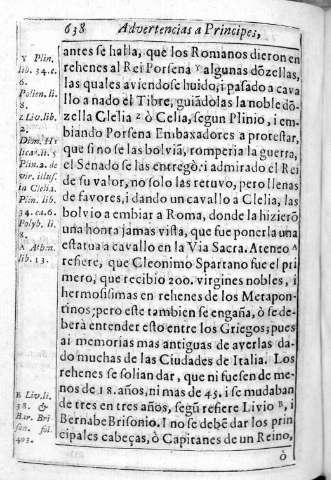 638 Advertencias a Principes,
antes se halla, que los Romanos dieron en
rehenes al Rei Porsena Y algunas dõzellas,
las quales aviendose huido, i pasado a cava
llo a nado el Tibre, guiãdolas la noble dõ-
zella Clelia Z ò Celia, segun Plinio, i em-
biando Porsena Embaxadores a protestar,
que si no se las bolviã, romperia la guerra,
el Senado se las entregò: i admirado el Rei
de su valor, no solo las retuvo, pero llenas
de favores, i dando un cavallo a Clelia, las
bolvio a embiar a Roma, donde la hizierõ
una honra jamas vista, que fue ponerla una
estatua a cavallo en la Via Sacra. Ateneo A
refiere, que Cleonimo Spartano fue el pri
mero, que recibio 200. virgines nobles, i
hermosissimas en rehenes de los Metapon-
tinos; pero este tambien se engaña, ò se de-
berà entender esto entre los Griegos; pues
ai memorias mas antiguas de averlas da-
do muchas de las Ciudades de Italia. Los
rehenes se solian dar, que ni fuesen de me-
nos de 18. años, ni mas de 45. i se mudaban
de tres en tres años, segũ refiere Livio B, i
Bernabe Brisonio. I no se debẽ dar los prin
cipales cabeças, ò Capitanes de un Reino,
ò
Y Plin.
lib. 34. c.
6.
Polien. li.
8.
Z Liv. lib.
2.
Dion. H
licar. li. 5
Plin. 2. de
vir. illust.
in Clelia.
Plin. lib.
34. ca. 6.
Polyb. li.
8.
A Athen.
lib. 13.
B Liv. li.
38. &
Bar. Bri
son. fol.
403.